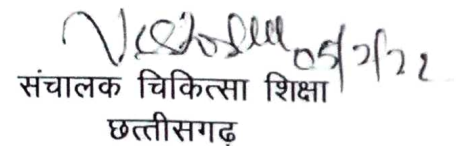 05/2/22
संचालक चिकित्सा शिक्षा
छत्तीसगढ़